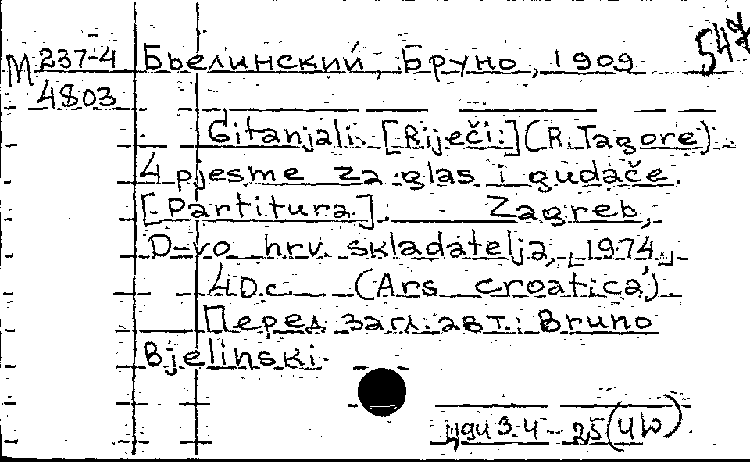 547
М 237-4 Бьелинский, Бруно, 1909
4803
Gitanjali. [Riječi:] (R. Tagore).
4 pjesme za glas i gudače.
[Partitura]. Zagreb,
D-vo hrv. skladatelja, [1974]
40 c. (Ars croatica)
Перед загл. авт.: Bruno
Bjelinski.
3.4-25(